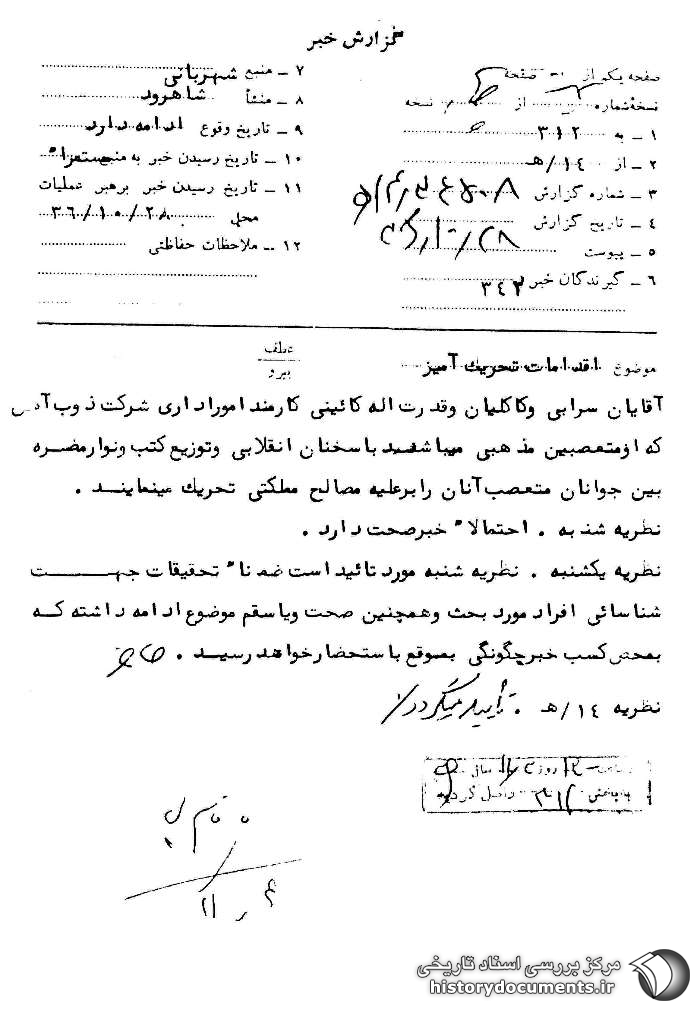 گزارش خبر
صفحه یکم از صفحه
نسخه شماره از نسخه
۱ ـ به ۳۱۲
۲ ـ از ۱۴/ه‍
۳ ـ شماره گزارش
۴ ـ تاریخ گزارش
۵ ـ پیوست
۶ ـ گیرندگان خبر ۳۴۲
۷ ـ منبع شهربانی
۸ ـ منشأ شاهرود
۹ ـ تاریخ وقوع ادامه دارد
۱۰ ـ تاریخ رسیدن خبر به منبع مستمراً
۱۱ ـ تاریخ رسیدن خبر برهبر عملیات
محل ۳۶/۱۰/۲۸
۱۲ ـ ملاحظات حفاظتی
موضوع اقدامات تحریک آمیز
عطف
پیرو
آقایان سرابی وکاکلیان وقدرت اله کائینی کارمند اموراداری شرکت ذوب آهن
که ازمتعصبین مذهبی میباشند باسخنان انقلابی وتوزیع کتب ونوار مضره
بین جوانان متعصب آنان را برعلیه مصالح مملکتی تحریک مینمایند .
نظریه شنبه . احتمالاً خبرصحت دارد .
نظریه یکشنبه . نظریه شنبه مورد تائید است ضمناً تحقیقات جهت
شناسائی افراد مورد بحث وهمچنین صحت ویاسقم موضوع ادامه داشته که
بمحض کسب خبرچگونگی بموقع باستحضار خواهد رسید .
نظریه ۱۴/ه‍ . تأیید میگردد
بایگانی ۳۱۲ واصل گردید
مرکز بررسی اسناد تاریخی
historydocuments.ir